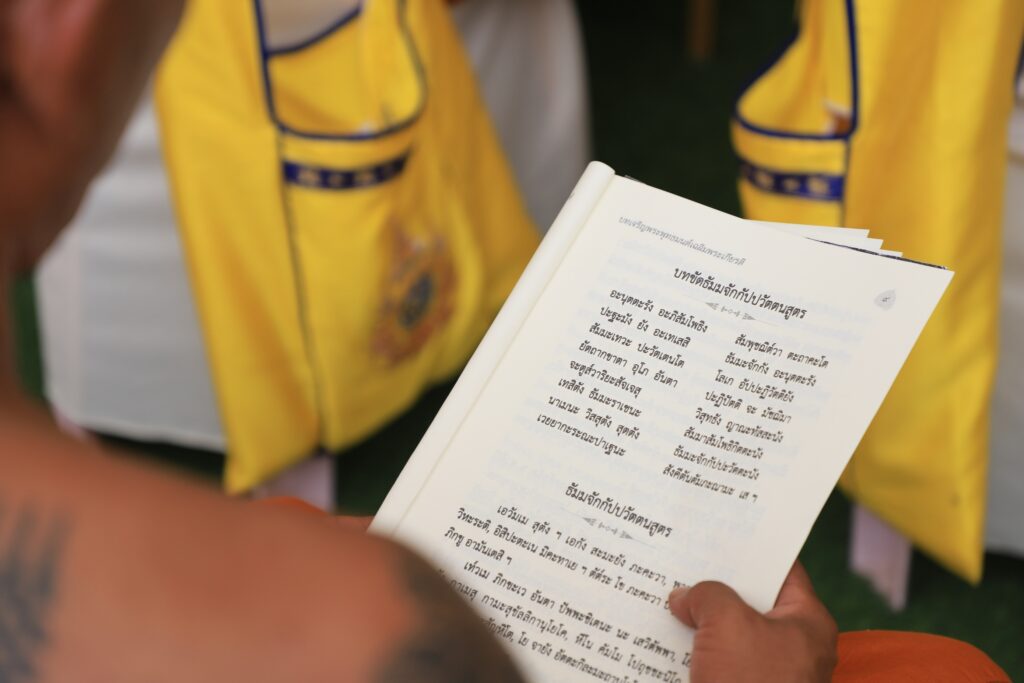 บทเจริญพระพุทธมนต์เฉลิมพระเกียรติ
๙
บทขัดธัมมจักกัปปวัตตนสูตร
อะนุตตะรัง อะภิสัมโพธิง สัมพุชฌิต๎วา ตะถาคะโต
ปะฐะมัง ยัง อะเทเสสิ ธัมมะจักกัง อะนุตตะรัง
สัมมะเทวะ ปะวัตเตนโต โลเก อัปปะฏิวัตติยัง
ยัตถากขาตา อุโภ อันตา ปะฏิปัตติ จะ มัชฌิมา
จะตูส๎วาริยะสัจเจสุ วิสุทธัง ญาณะทัสสะนัง
เทสิตัง ธัมมะราเชนะ สัมมาสัมโพธิกิตตะนัง
นาเมนะ วิสสุตัง สุตตัง ธัมมะจักกัปปะวัตตะนัง
เวยยากะระณะปาเฐนะ สังคีตันตัมภะณามะ เส ฯ
ธัมมจักกัปปวัตตนสูตร
เอวัมเม สุตัง ฯ เอกัง สะมะยัง ภะคะวา,
วิหะระติ, อิสิปะตะเน มิคะทาเย ฯ ตัต๎ระ โข ภะคะวา
ภิกขู อามันเตสิ ฯ
เท๎วเม ภิกขะเว อันตา ปัพพะชิเตนะ นะ เสวิตัพพา,
กาเมสุ กามะสุขัลลิกานุโยโค, หีโน คัมโม โปถุชชะนิโก
โย จายัง อัตตะกิละมะถา